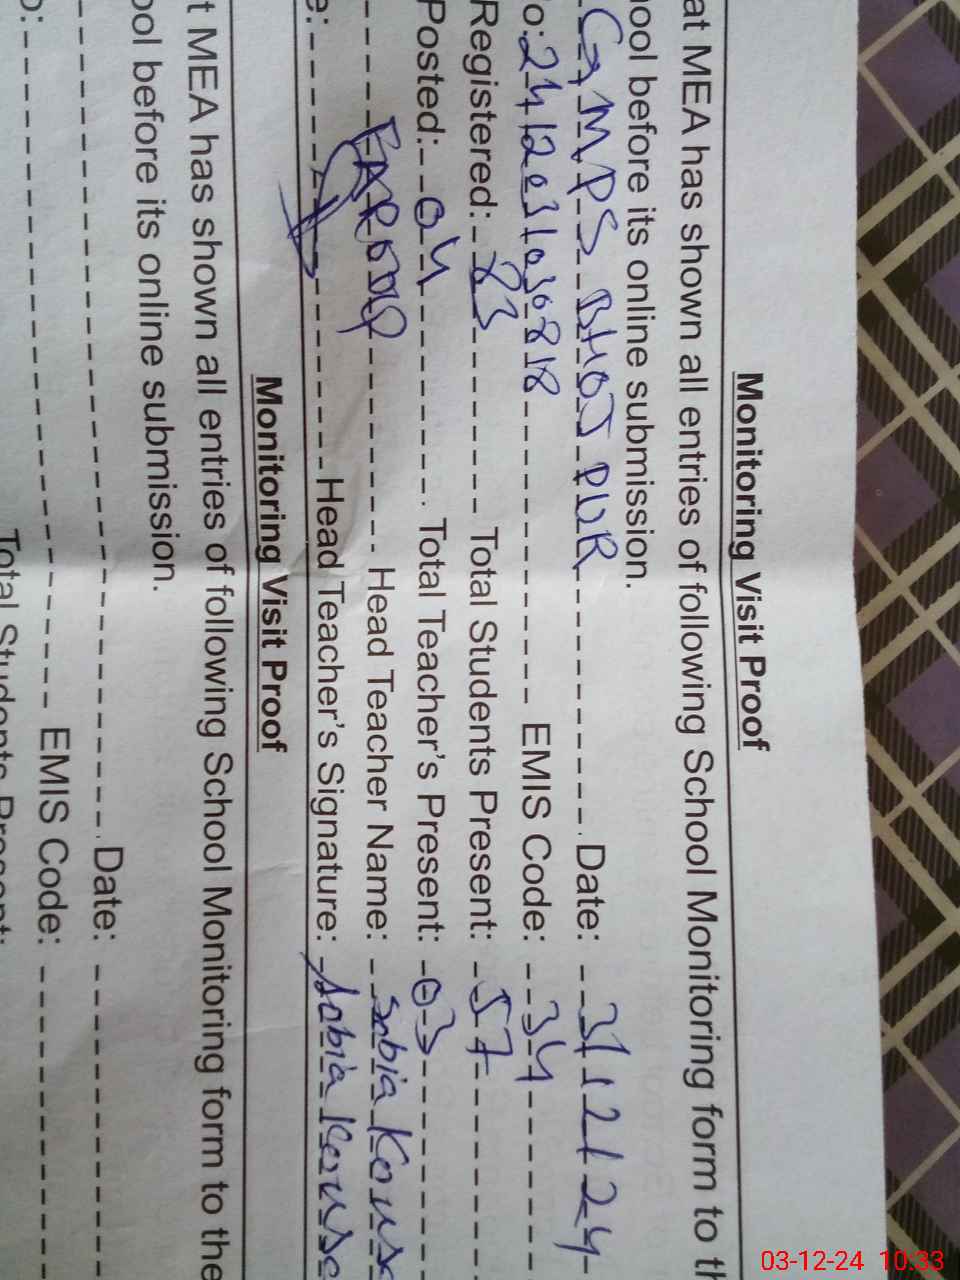 Monitoring Visit Proof
at MEA has shown all entries of following School Monitoring form to th
ool before its online submission.
GMPS BHOJ PUR Date: 3/12/24
o: 2412e31030818 EMIS Code: 34
Registered: 83 Total Students Present: 57
Posted: 04 Total Teacher's Present: 03
FAROOQ Head Teacher Name: Sobia Kous
e: Head Teacher's Signature: Sobia Kouse
Monitoring Visit Proof
t MEA has shown all entries of following School Monitoring form to the
ool before its online submission.
Date:
o: EMIS Code:
Total Students Present:
03-12-24 10:33